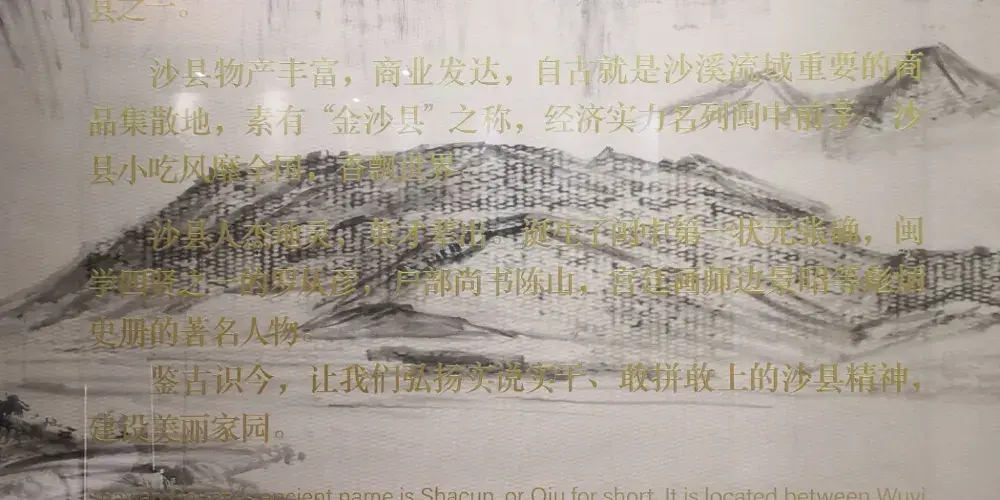 县之一。
沙县物产丰富，商业发达，自古就是沙溪流域重要的商
品集散地，素有“金沙县”之称，经济实力名列闽中前茅。沙
县小吃风靡全国，香飘世界。
沙县人杰地灵，英才辈出。诞生了闽中第一状元张确，闽
学四贤之一的罗从彦，户部尚书陈山，宫廷画师边景昭等彪炳
史册的著名人物。
鉴古识今，让我们弘扬实说实干、敢拼敢上的沙县精神，
建设美丽家园。
ancient name is Shacun, or Qiu for short. It is located between Wuyi